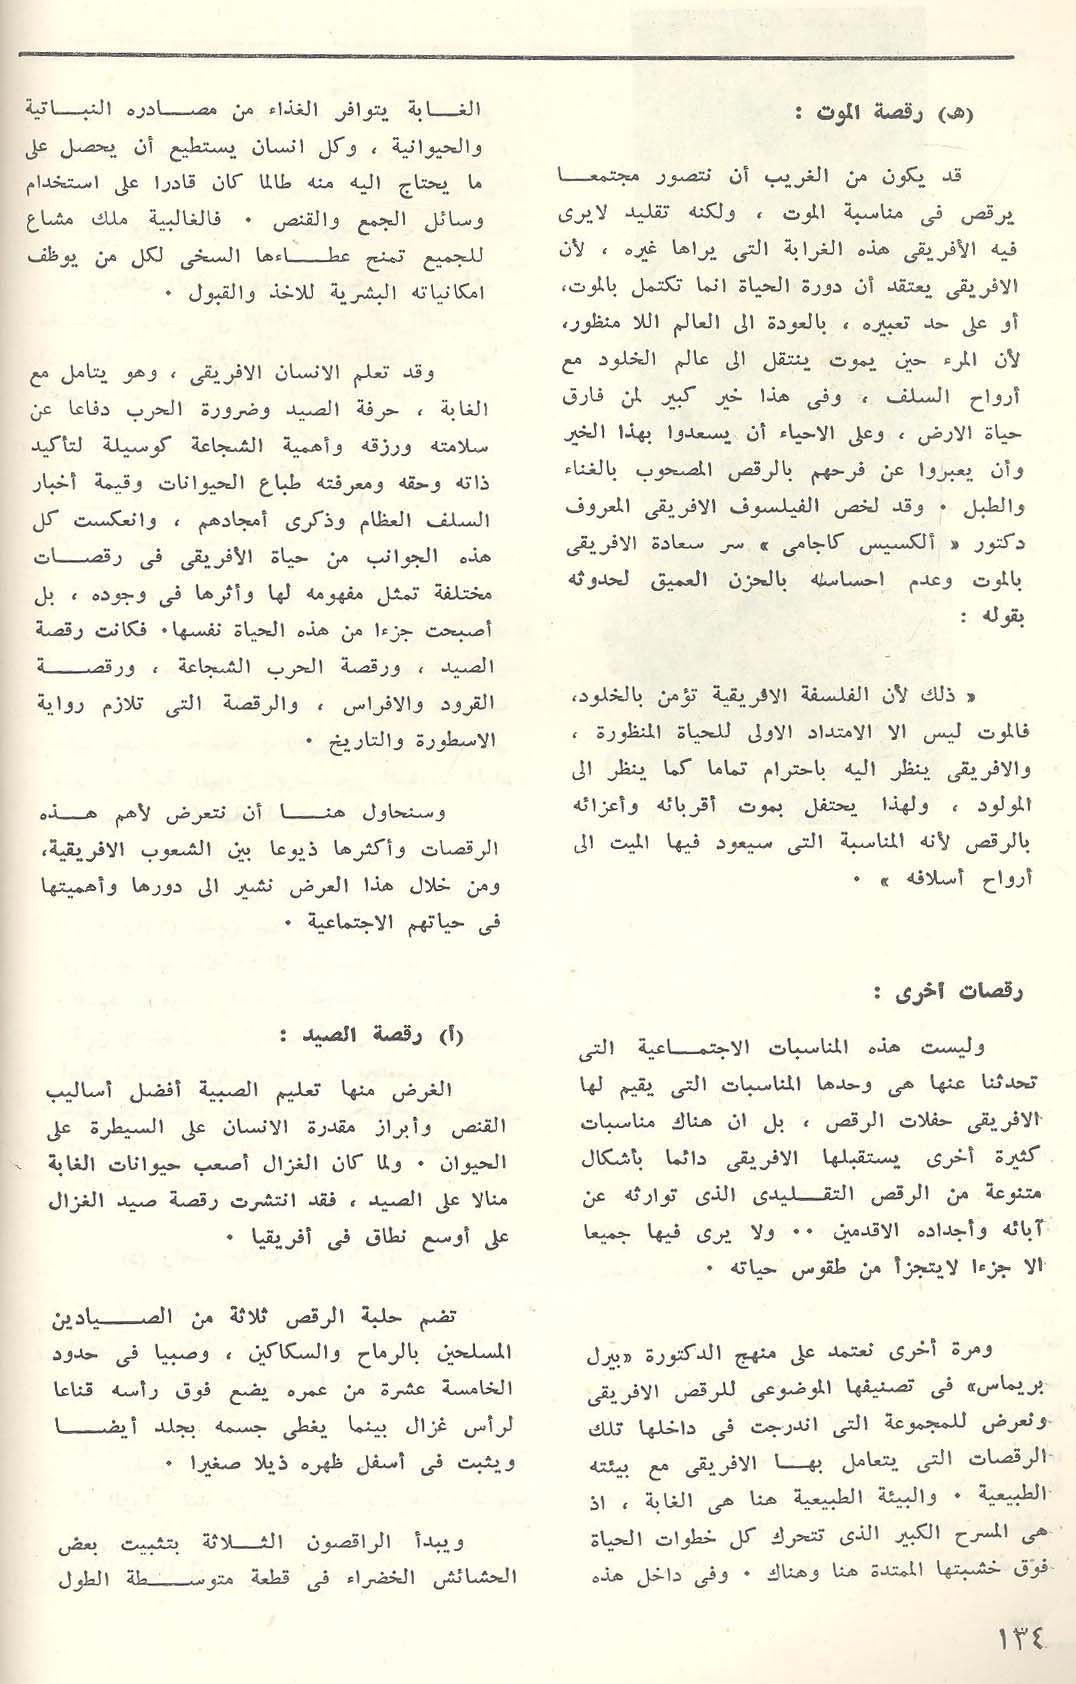 (هـ) رقصة الموت :
قد يكون من الغريب أن نتصور مجتمعــا
يرقص فى مناسبة الموت ، ولكنه تقليد لايرى
فيه الأفريقى هذه الغرابة التى يراها غيره ، لأن
الافريقى يعتقد أن دورة الحياة انما تكتمل بالموت،
أو على حد تعبيره ، بالعودة الى العالم اللا منظور،
لأن المرء حين يموت ينتقل الى عالم الخلود مع
أرواح السلف ، وفى هذا خير كبير لمن فارق
حياة الارض ، وعلى الاحياء أن يسعدوا بهذا الخبر
وأن يعبروا عن فرحهم بالرقص المصحوب بالغناء
والطبل ٠ وقد لخص الفيلسوف الافريقى المعروف
دكتور « ألكسيس كاجامى » سر سعادة الافريقى
بالموت وعدم احساسه بالحزن العميق لحدوثه
بقوله :
« ذلك لأن الفلسفة الافريقية تؤمن بالخلود،
فالموت ليس الا الامتداد الاولى للحياة المنظورة ،
والافريقى ينظر اليه باحترام تماما كما ينظر الى
المولود ، ولهذا يحتفل بموت أقربائه وأعزائه
بالرقص لأنه المناسبة التى سيعود فيها الميت الى
أرواح أسلافه » ٠
رقصات أخرى :
وليست هذه المناسبات الاجتمــاعية التى
تحدثنا عنها هى وحدها المناسبات التى يقيم لها
الافريقى حفلات الرقص ، بل ان هناك مناسبات
كثيرة أخرى يستقبلها الافريقى دائما بأشكال
متنوعة من الرقص التقــليدى الذى توارثه عن
آبائه وأجداده الاقدمين ٠٠ ولا يرى فيها جميعا
الا جزءا لايتجزأ من طقوس حياته ٠
ومرة أخرى نعتمد على منهج الدكتورة «بيرل
بريماس» فى تصنيفها الموضوعى للرقص الافريقى
ونعرض للمجموعة التى اندرجت فى داخلها تلك
الرقصات التى يتعامل بهــا الافريقى مع بيئته
الطبيعية ٠ والبيئة الطبيعية هنا هى الغابة ، اذ
هى المسرح الكبير الذى تتحرك كل خطوات الحياة
فوق خشبتها الممتدة هنا وهناك ٠ وفى داخل هذه
الغــابة يتوافر الغذاء من مصــادره النبــاتية
والحيوانية ، وكل انسان يستطيع أن يحصل على
ما يحتاج اليه منه طالما كان قادرا على استخدام
وسائل الجمع والقنص ٠ فالغالبية ملك مشاع
للجميع تمنح عطــاءها السخى لكل من يوظف
امكانياته البشرية للاخذ والقبول ٠
وقد تعلم الانسان الافريقى ، وهو يتامل مع
الغابة ، حرفة الصيد وضرورة الحرب دفاعا عن
سلامته ورزقه وأهمية الشجاعة كوسيلة لتأكيد
ذاته وحقه ومعرفته طباع الحيوانات وقيمة أخبار
السلف العظام وذكرى أمجادهم ، وانعكست كل
هذه الجوانب من حياة الأفريقى فى رقصــات
مختلفة تمثل مفهومه لها وأثرها فى وجوده ، بل
أصبحت جزءا من هذه الحياة نفسها٠ فكانت رقصة
الصيد ، ورقصة الحرب الشجاعة ، ورقصــة
القرود والافراس ، والرقصة التى تلازم رواية
الاسطورة والتاريخ ٠
وسنحاول هنــا أن نتعرض لأهم هــذه
الرقصات وأكثرها ذيوعا بين الشعوب الافريقية،
ومن خلال هذا العرض نشير الى دورها وأهميتها
فى حياتهم الاجتماعية ٠
(أ) رقصة الصيد :
الغرض منها تعليم الصبية أفضل أساليب
القنص وأبراز مقدرة الانسان على السيطرة على
الحيوان ٠ ولما كان الغزال أصعب حيوانات الغابة
منالا على الصيد ، فقد انتشرت رقصة صيد الغزال
على أوسع نطاق فى أفريقيا ٠
تضم حلبة الرقص ثلاثة من الصــيادين
المسلحين بالرماح والسكاكين ، وصبيا فى حدود
الخامسة عشرة من عمره يضع فوق رأسه قناعا
لرأس غزال بينما يغطى جسمه بجلد أيضــا
ويثبت فى أسفل ظهره ذيلا صغيرا ٠
ويبدأ الراقصون الثــلاثة بتثبيت بعض
الحشائش الخضراء فى قطعة متوســطة الطول
١٣٤